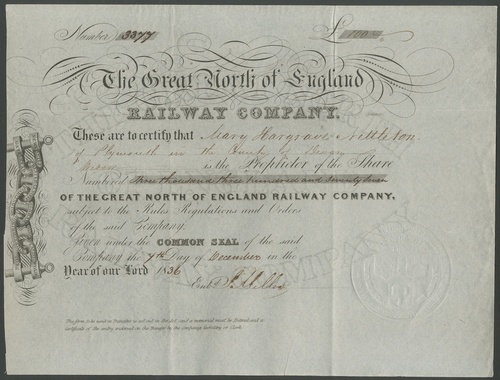 Number 3377 £ 100
The Great North of England
RAILWAY COMPANY.
These are to certify that Mary Hargrave Nettleton
of Plymouth in the County of Devon
Widow is the Proprietor of the Share
Numbered three thousand three hundred and seventy seven
OF THE GREAT NORTH OF ENGLAND RAILWAY COMPANY,
subject to the Rules Regulations and Orders
of the said Company.
Given under the COMMON SEAL of the said
Company the 7th Day of December in the
Year of our Lord 1836